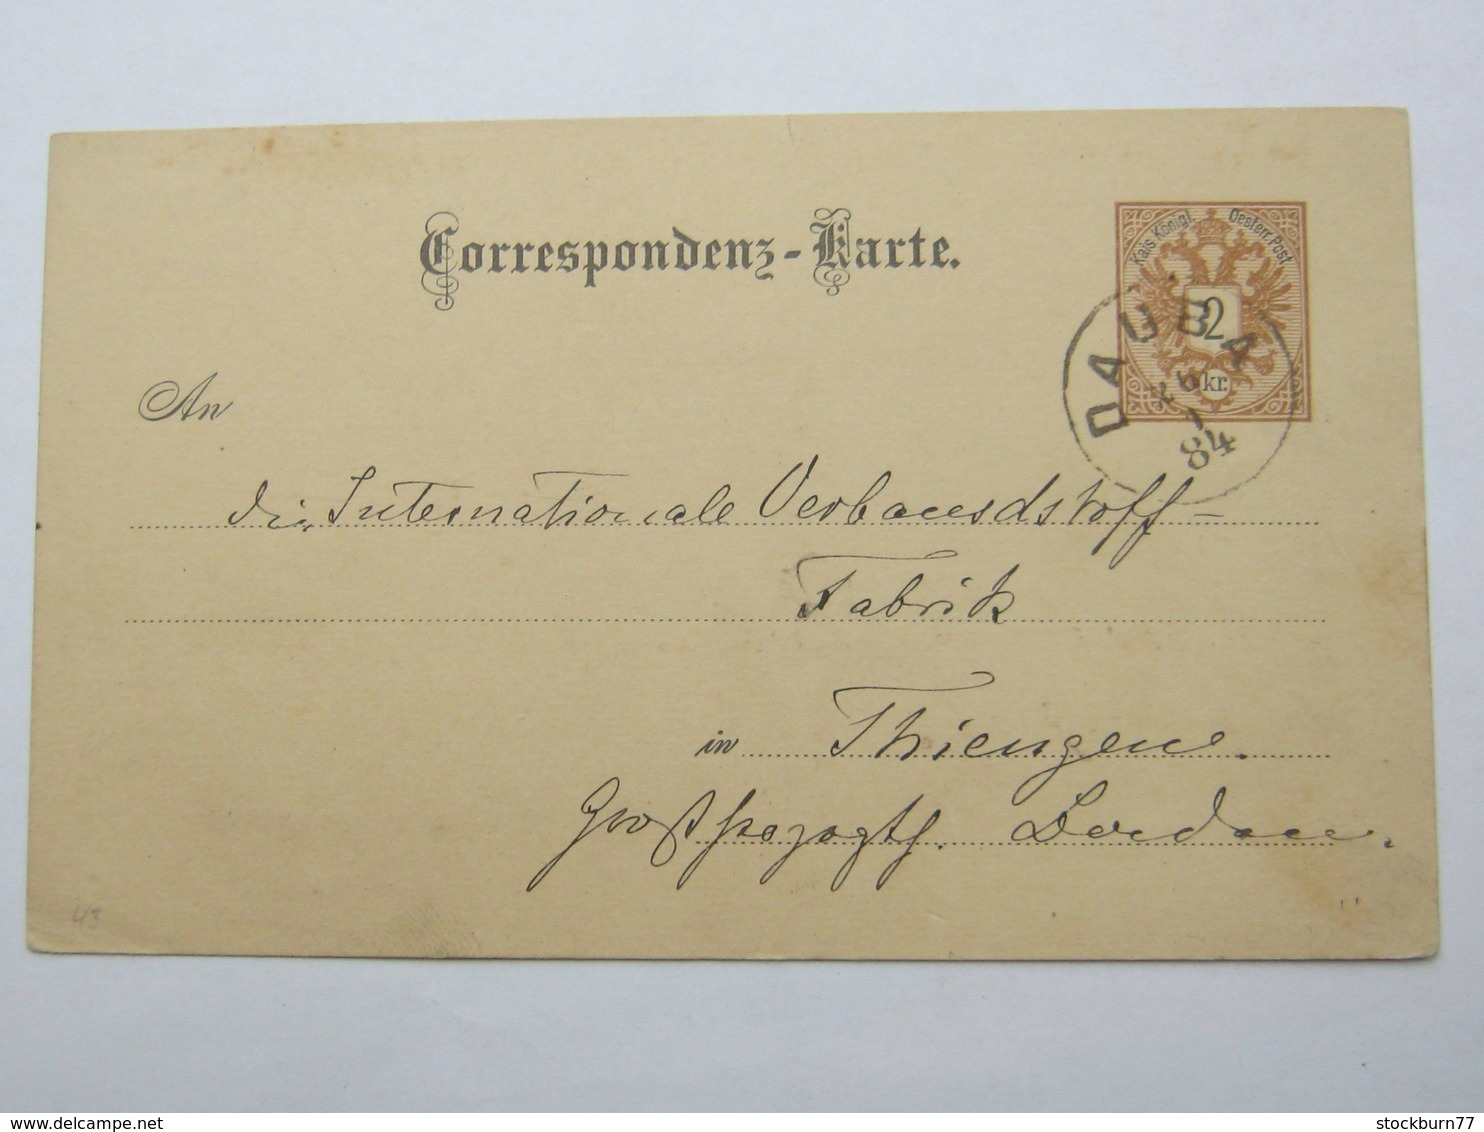 Correspondenz-Karte.
Kais. Königl. Oesterr. Post
2
kr.
DAUBA
84
An
die Internationale Verbandstoff-
Fabrik
in Thiengen.
Großherzogth. Baden.
43
stockburn77